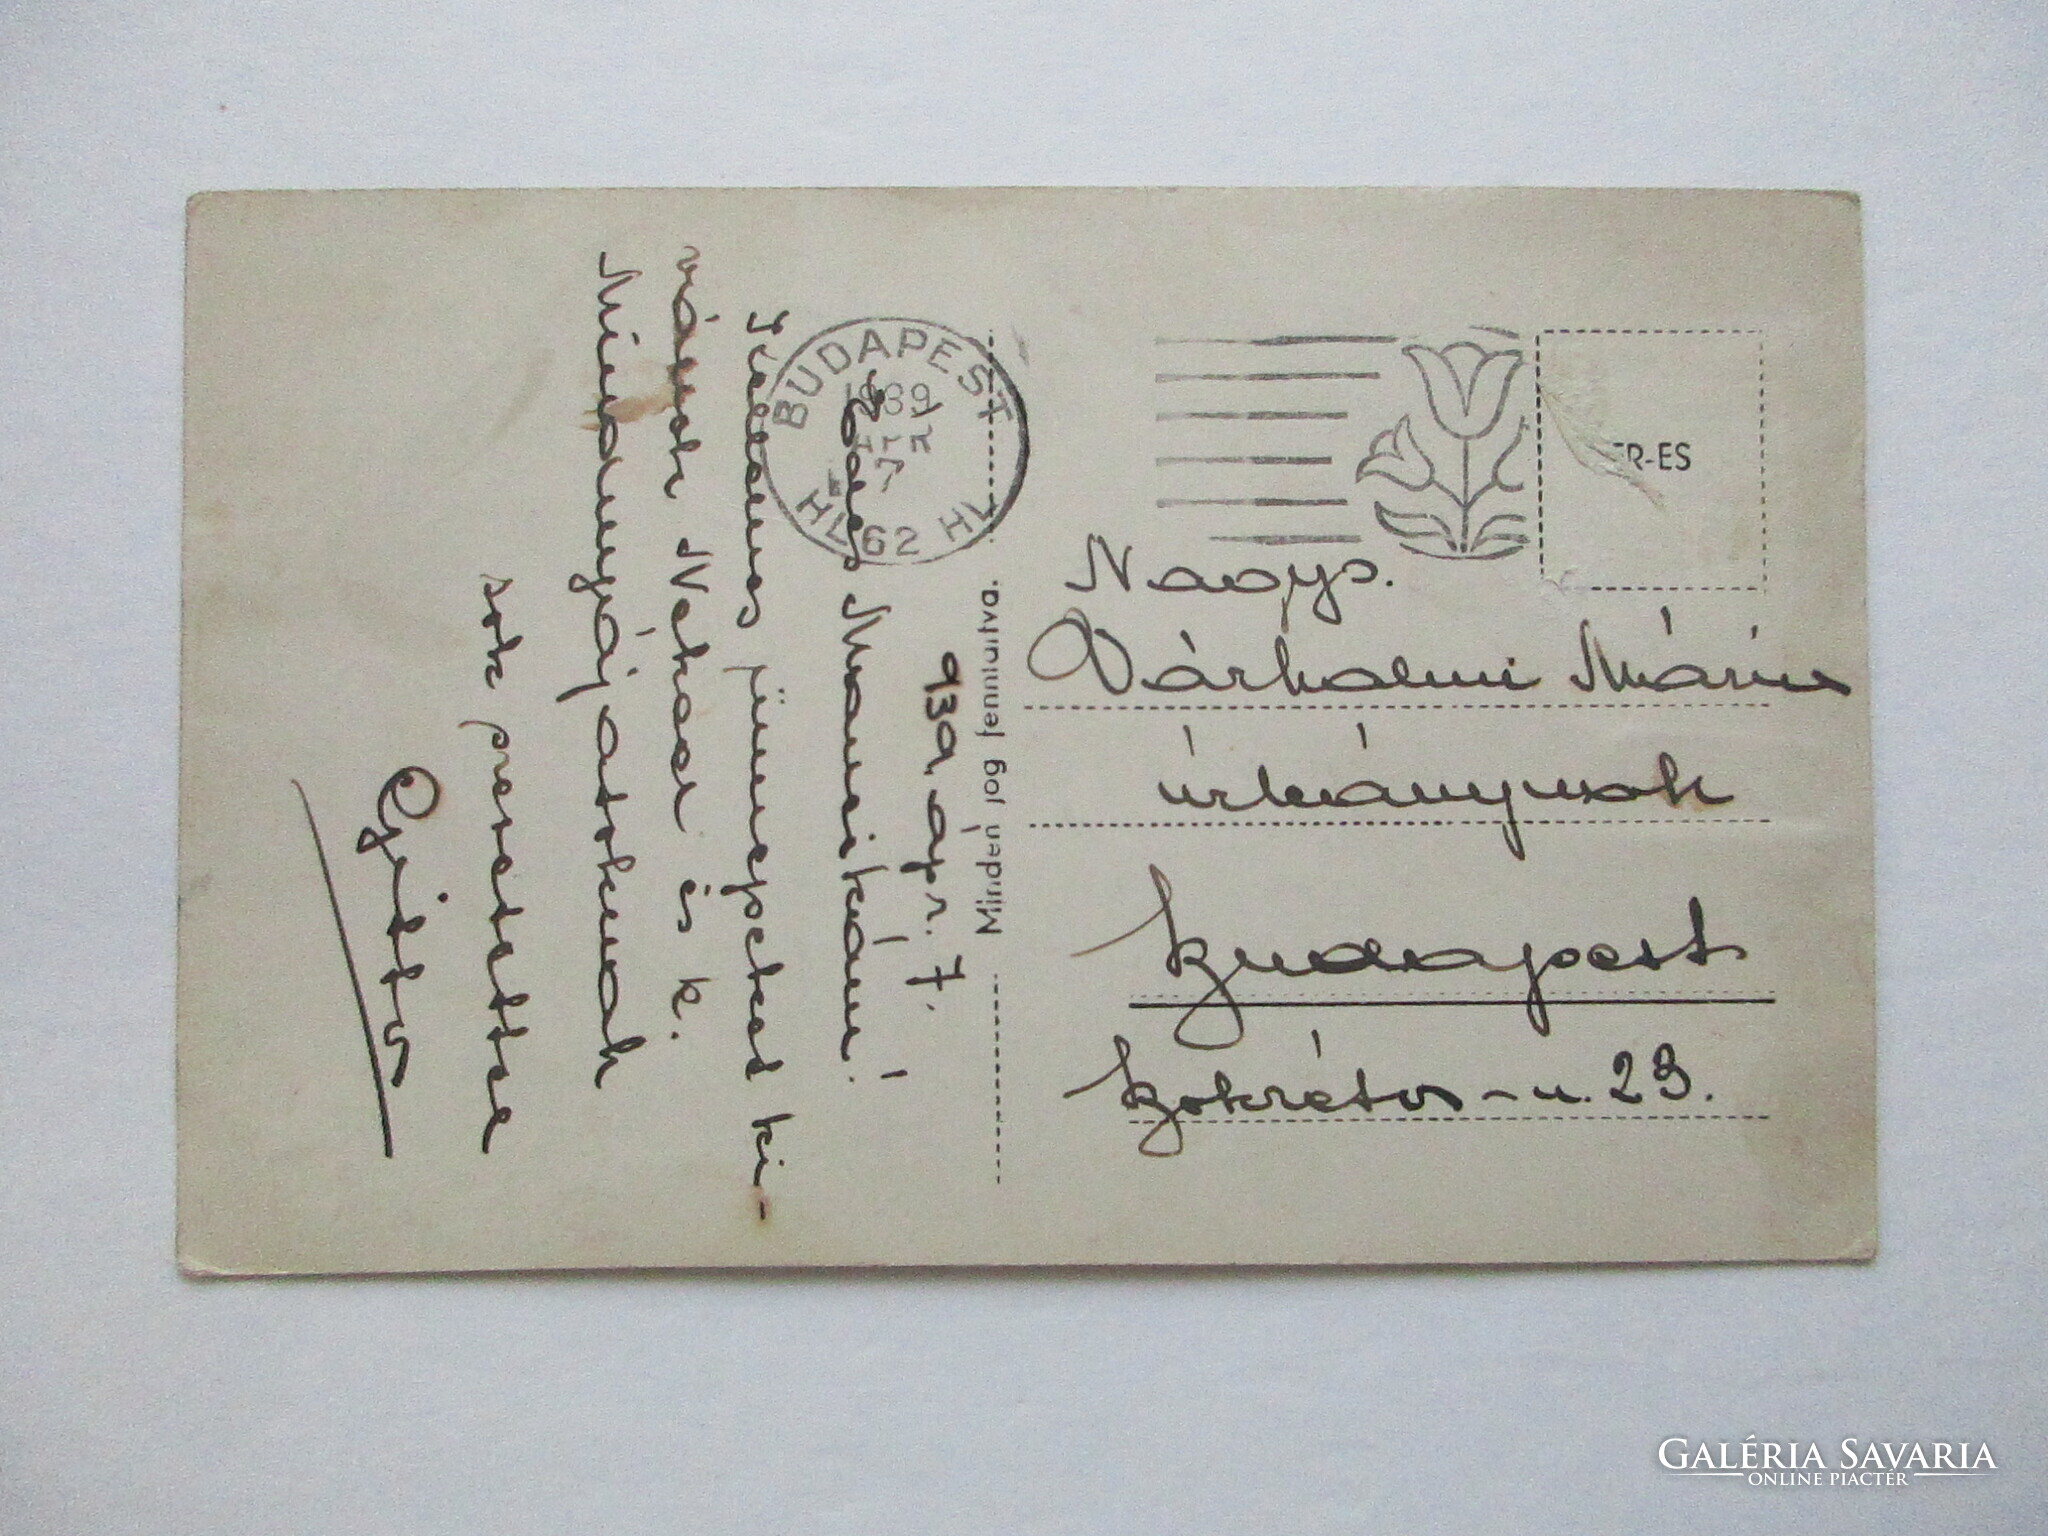 939. ápr. 7.
Édes Mancikám!
Kellemes ünnepeket kí-
vánok Neked és k.
Mindnyájatoknak
sok szeretettel
Gitta
Minden jog fenntartva.
BUDAPEST
1939
HL 62 HL
ER-ES
Nagys.
Várhalmi Mária
úrleánynak
Budapest
Szokrátes-u. 23.
GALÉRIA SAVARIA
ONLINE PIACTÉR